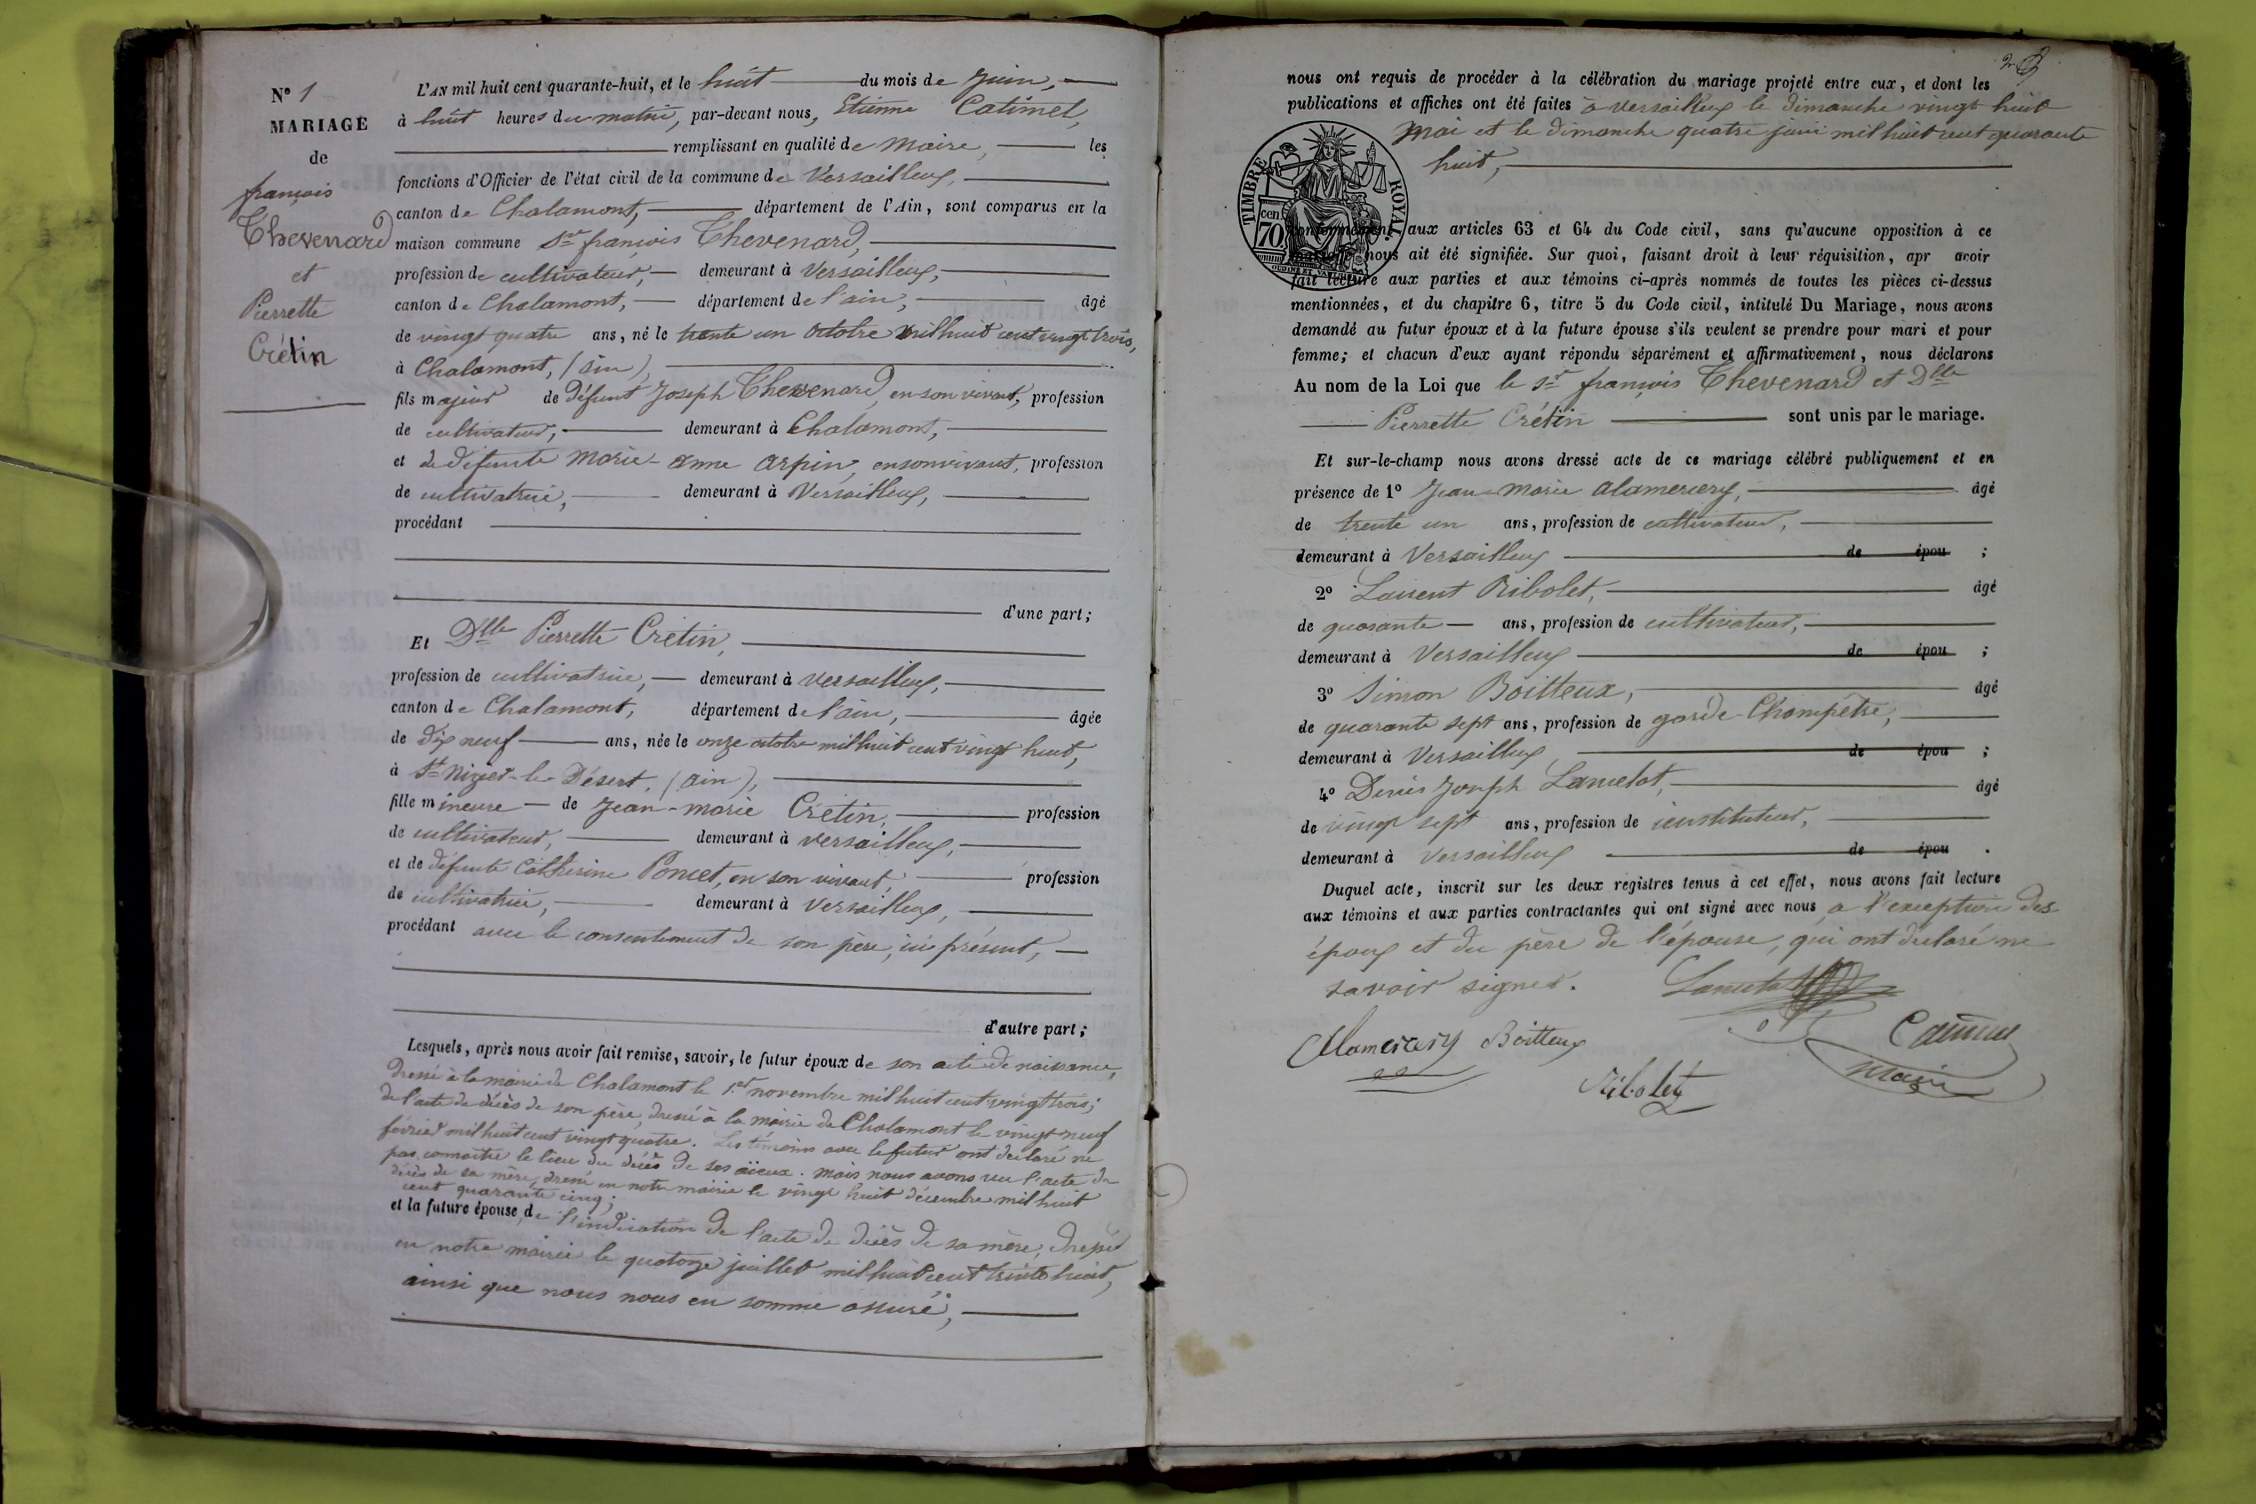 N° 1
MARIAGE
de
françois
Thevenard
et
Pierrette
Crétin
L'AN mil huit cent quarante-huit, et le huit du mois de Juin,
à huit heures du matin, par-devant nous, Etienne Catimel,
remplissant en qualité de Maire, les
fonctions d'Officier de l'état civil de la commune de Versailleux,
canton de Chalamont, département de l'Ain, sont comparus en la
maison commune Sr françois Thevenard,
profession de cultivateur, demeurant à Versailleux,
canton de Chalamont, département de l'ain, âgé
de vingt quatre ans, né le trente un octobre mil huit cent vingt trois,
à Chalamont, (ain),
fils majeur de défunt Joseph Thevenard, en son vivant, profession
de cultivateur, demeurant à Chalamont,
et de défunte Marie-anne arpin, en son vivant, profession
de cultivatrice, demeurant à Versailleux,
procédant
d'une part;
Et Dlle Pierrette Crétin,
profession de cultivatrice, demeurant à Versailleux,
canton de Chalamont, département de l'ain, âgée
de dix neuf ans, née le onze octobre mil huit cent vingt huit,
à St Nizier-le-Désert, (ain),
fille mineure de Jean-marie Crétin, profession
de cultivateur, demeurant à Versailleux,
et de défunte Catherine Poncet, en son vivant, profession
de cultivatrice, demeurant à Versailleux,
procédant avec le consentement de son père, ici présent,
d'autre part;
Lesquels, après nous avoir fait remise, savoir, le futur époux de son acte de naissance,
dressé à la mairie de Chalamont le 1er novembre mil huit cent vingt trois;
de l'acte de décès de son père, dressé à la mairie de Chalamont le vingt neuf
février mil huit cent vingt quatre. Les témoins avec le futur ont déclaré ne
pas connaitre le lieu du décès de ses aïeux. Mais nous avons vu l'acte de
décès de sa mère, dressé en notre mairie le vingt huit décembre mil huit
cent quarante cinq;
et la future épouse, de l'indication de l'acte de décès de sa mère, dressé
en notre mairie le quatorze juillet mil huit cent trente huit,
ainsi que nous nous en somme assuré,
nous ont requis de procéder à la célébration du mariage projeté entre eux, et dont les
publications et affiches ont été faites à Versailleux le dimanche vingt huit
mai et le dimanche quatre juin mil huit cent quarante
huit,
TIMBRE ROYAL
cen. 70
conformément aux articles 63 et 64 du Code civil, sans qu'aucune opposition à ce
mariage nous ait été signifiée. Sur quoi, faisant droit à leur réquisition, apr avoir
fait lecture aux parties et aux témoins ci-après nommés de toutes les pièces ci-dessus
mentionnées, et du chapitre 6, titre 5 du Code civil, intitulé Du Mariage, nous avons
demandé au futur époux et à la future épouse s'ils veulent se prendre pour mari et pour
femme; et chacun d'eux ayant répondu séparément et affirmativement, nous déclarons
Au nom de la Loi que le Sr françois Thevenard et Dlle
Pierrette Crétin sont unis par le mariage.
Et sur-le-champ nous avons dressé acte de ce mariage célébré publiquement et en
présence de 1° Jean-Marie alamercery, âgé
de trente un ans, profession de cultivateur,
demeurant à Versailleux de épou ;
2° Laurent Ribolet, âgé
de quarante ans, profession de cultivateur,
demeurant à Versailleux de épou ;
3° Simon Boitteux, âgé
de quarante sept ans, profession de garde-Champêtre,
demeurant à Versailleux de épou ;
4° Denis Joseph Lancelot, âgé
de vingt sept ans, profession de instituteur,
demeurant à Versailleux de épou .
Duquel acte, inscrit sur les deux registres tenus à cet effet, nous avons fait lecture
aux témoins et aux parties contractantes qui ont signé avec nous a l'exception des
époux et du père de l'épouse, qui ont déclaré ne
savoir signer.
Lancelot
Alamercery Boitteux
Catimel
Ribolet
Maire